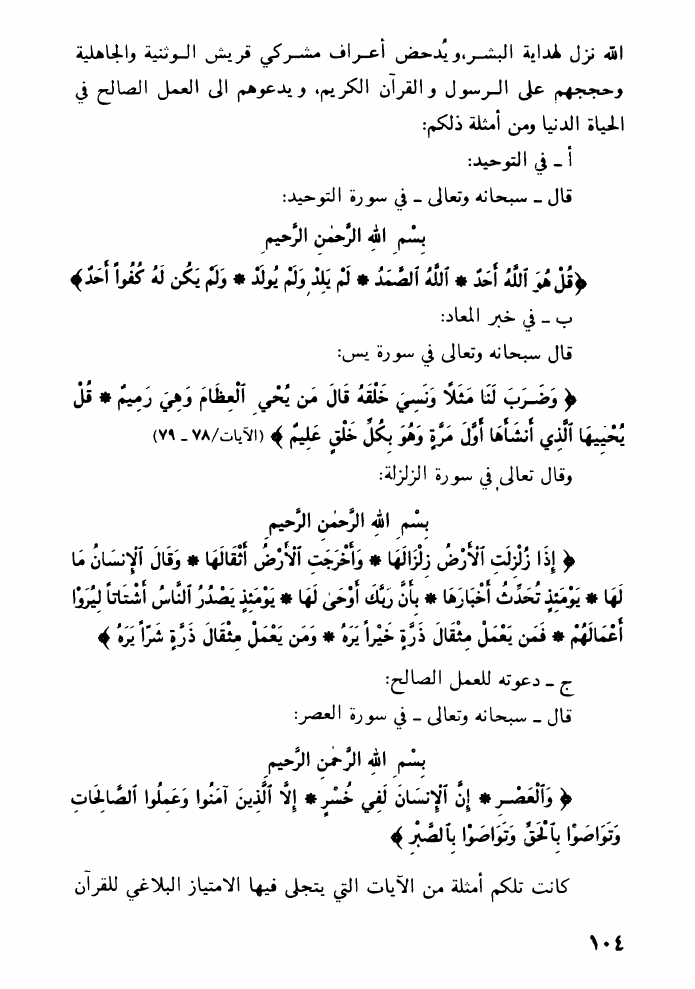 الله نزل لهداية البشر،ويُدحض أعراف مشركي قريش الوثنية والجاهلية
وحججهم على الرسول والقرآن الكريم، ويدعوهم الى العمل الصالح في
الحياة الدنيا ومن أمثلة ذلكم:
أ ـ في التوحيد:
قال ـ سبحانه وتعالى ـ في سورة التوحيد:
بِسْمِ اللهِ الرَّحمٰنِ الرَّحيمِ
﴿قُلْ هُوَ ٱللَّهُ أَحَدٌ * ٱللَّهُ ٱلصَّمَدُ * لَمْ يَلِدْ وَلَمْ يُولَدْ * وَلَمْ يَكُن لَهُ كُفُواً أَحَدٌ﴾
ب ـ في خبر المعاد:
قال سبحانه وتعالى في سورة يس:
﴿ وَضَرَبَ لَنَا مَثَلًا وَنَسِيَ خَلْقَهُ قَالَ مَن يُحْيِ ٱلْعِظَامَ وَهِيَ رَمِيمٌ * قُلْ
يُحْيِيهَا ٱلَّذِي أَنشَأَهَا أَوَّلَ مَرَّةٍ وَهُوَ بِكُلِّ خَلْقٍ عَلِيمٌ ﴾ (الآيات/٧٨ ـ ٧٩)
وقال تعالى في سورة الزلزلة:
بِسْمِ اللهِ الرَّحمٰنِ الرَّحيمِ
﴿ إِذَا زُلْزِلَتِ ٱلْأَرْضُ زِلْزَالَهَا * وَأَخْرَجَتِ ٱلْأَرْضُ أَثْقَالَهَا * وَقَالَ ٱلْإِنسَانُ مَا
لَهَا * يَوْمَئِذٍ تُحَدِّثُ أَخْبَارَهَا * بِأَنَّ رَبَّكَ أَوْحَىٰ لَهَا * يَوْمَئِذٍ يَصْدُرُ ٱلنَّاسُ أَشْتَاتاً لِيُرَوْا
أَعْمَالَهُمْ * فَمَن يَعْمَلْ مِثْقَالَ ذَرَّةٍ خَيْراً يَرَهُ * وَمَن يَعْمَلْ مِثْقَالَ ذَرَّةٍ شَرّاً يَرَهُ ﴾
ج ـ دعوته للعمل الصالح:
قال ـ سبحانه وتعالى ـ في سورة العصر:
بِسْمِ اللهِ الرَّحمٰنِ الرَّحيمِ
﴿ وَٱلْعَصْرِ * إِنَّ ٱلْإِنسَانَ لَفِي خُسْرٍ * إِلَّا ٱلَّذِينَ آمَنُوا وَعَمِلُوا ٱلصَّالِحَاتِ
وَتَوَاصَوْا بِٱلْحَقِّ وَتَوَاصَوْا بِٱلصَّبْرِ ﴾
كانت تلكم أمثلة من الآيات التي يتجلى فيها الامتياز البلاغي للقرآن
١٠٤